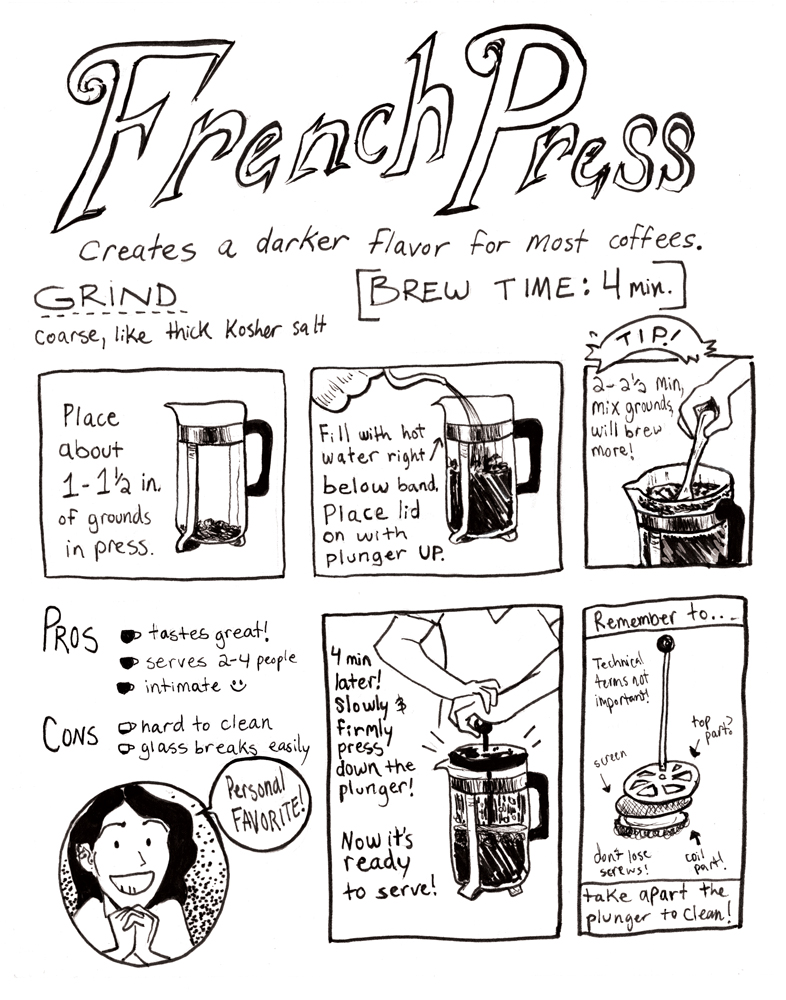 French Press
Creates a darker flavor for most coffees.
GRIND
coarse, like thick Kosher salt
[BREW TIME: 4 min.]
Place
about
1-1½ in.
of grounds
in press.
Fill with hot
water right
below band.
Place lid
on with
plunger UP.
TIP!
2-2½ min,
mix grounds,
will brew
more!
PROS
tastes great!
serves 2-4 people
intimate :)
CONS
hard to clean
glass breaks easily
Personal
FAVORITE!
4 min
later!
Slowly &
firmly
press
down the
plunger!
Now it's
ready
to serve!
Remember to...
Technical
terms not
important!
top
part?
screen
don't lose
screws!
coil
part!
take apart the
plunger to clean!